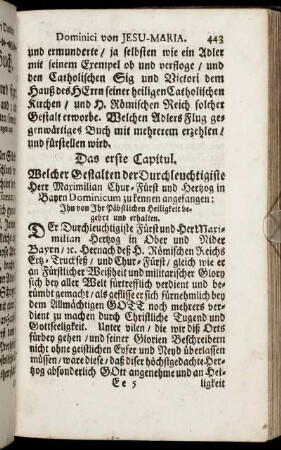 Dominici von JESU-MARIA. 443
und ermunderte / ja selbsten wie ein Adler
mit seinem Exempel ob und verfloge / und
den Catholischen Sig und Victori dem
Hauß des HErrn seiner heiligen Catholischen
Kirchen / und H. Römischen Reich solcher
Gestalt erworbe. Welchen Adlers Flug ge-
genwärtiges Buch mit mehrerem erzehlen /
und fürstellen wird.
Das erste Capitul.
Welcher Gestalten der Durchleuchtigiste
Herr Maximilian Chur-Fürst und Hertzog in
Bayrn Dominicum zu kennen angefangen:
Ihn von Ihr Päbstlichen Heiligkeit be-
gehrt und erhalten.
DEr Durchleuchtigiste Fürst und Herr Maxi-
milian Hertzog in Ober und Nider
Bayrn / ꝛc. Hernach deß H. Römischen Reichs
Ertz-Truckseß / und Chur-Fürst / gleich wie er
an Fürstlicher Weißheit und militarischer Glory
sich bey aller Welt fürtrefflich verdient und be-
rümbt gemacht / als geflisse er sich fürnehmlich bey
dem Allmächtigen GOTT noch mehrers ver-
dient zu machen durch Christliche Tugend und
Gottseeligkeit. Unter vilen / die wir diß Orts
fürbey gehen / und seiner Glorien Beschreibern
nicht ohne geistlichen Eyfer und Neyd überlassen
müssen / ware diese / daß diser höchstgedachte Her-
tzog absonderlich GOtt angenehme und an Hei-
Ee 5 ligkeit